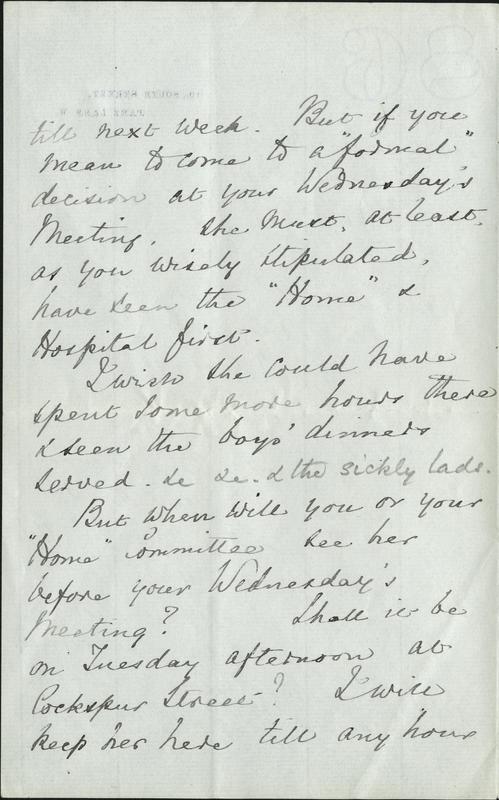 till next week. But if you
mean to come to a "formal"
decision at your Wednesday's
Meeting, she must, at least,
as you wisely stipulated,
have seen the "Home" &
Hospital first.
I wish she could have
spent some more hours there
& seen the boys' dinners
served. &c &c. & the sickly lads.
But when will you or your
"Home" Committee see her
before your Wednesday's
Meeting? Shall it be
on Tuesday afternoon at
Cockspur Street? I will
keep her here till any hour